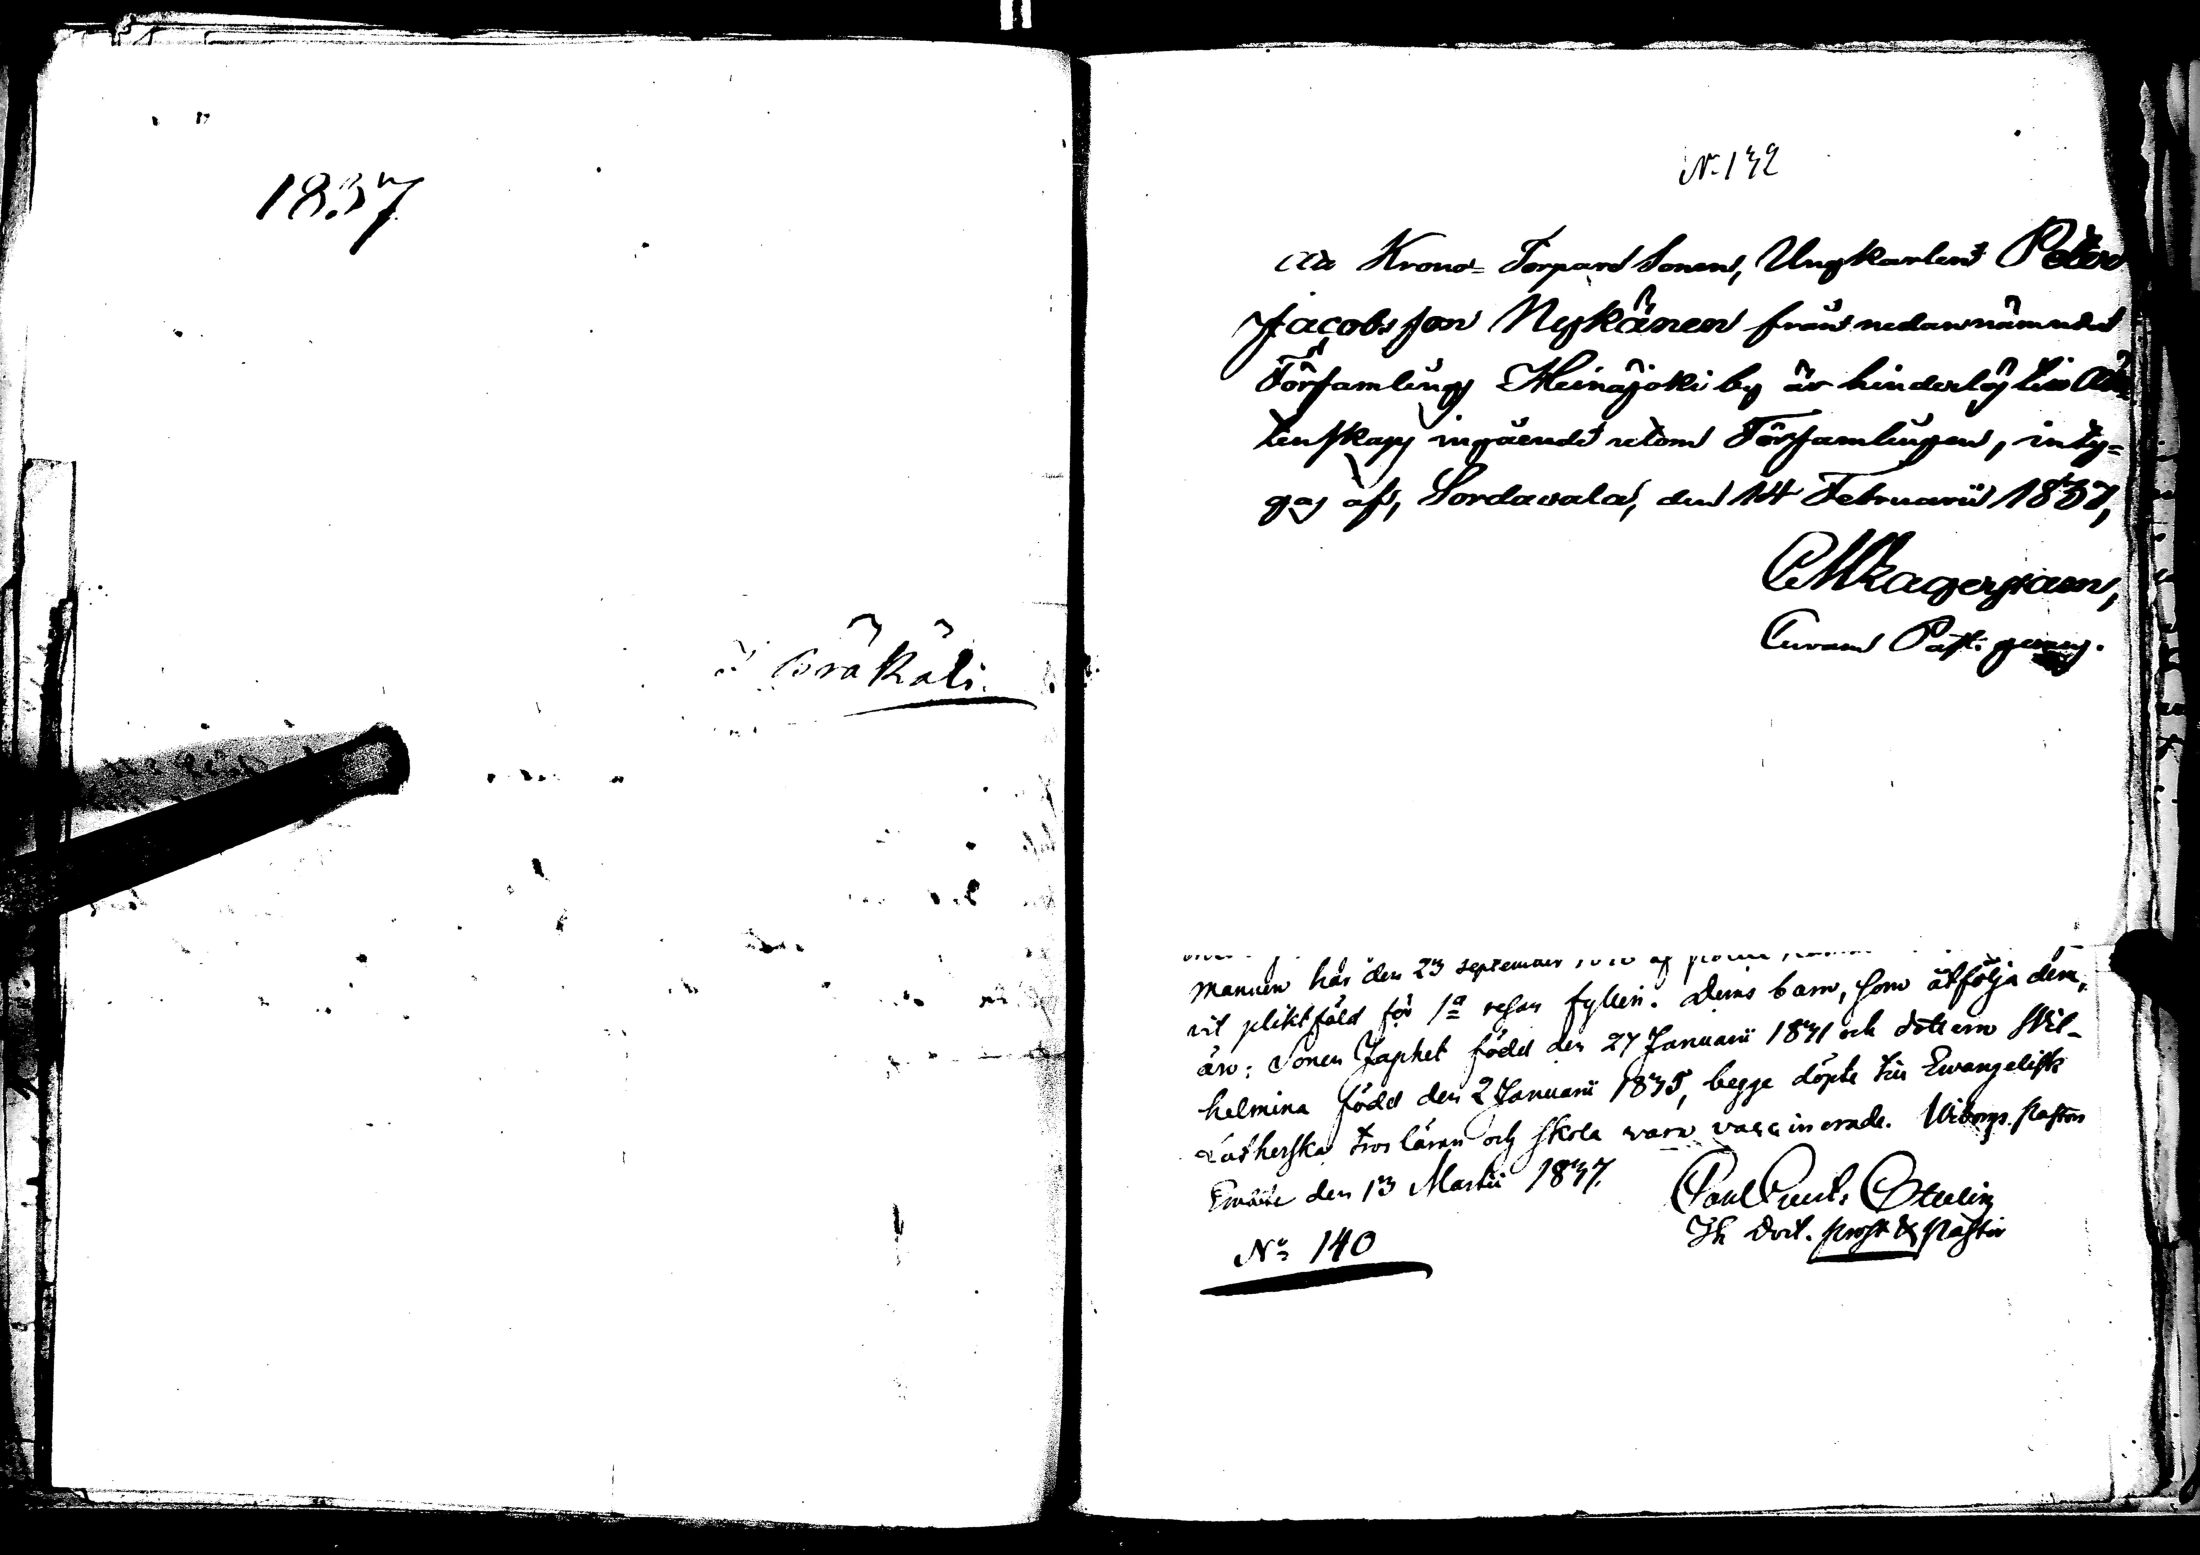 1837
Bräkäli.
N. 132
Att Krono-Torpare Sonen, Ungkarlen Petter
Jacobsson Nykänen från nedannämnde
Församlings Heinäjoki by är hinderlös till Äk-
tenskaps ingående utom Församlingen, inty-
gas af, Sordavala, den 14 Februarii 1837,
Curam Past: gerens.
mannen har den 23 September
vit pliktfäld för 1a resan fylleri. Deras barn, som åtfölja dem,
äro: Sonen Japhet född den 27 Januarii 1831 och dottern Wil-
helmina född den 2 Januarii 1835, begge döpte till Evangelisk
Lutherska trosläran och skola vara vaccinerade. Wiborgs Pastors
Embete den 13 Martii 1837.
Th Doct. Prost & Pastor
No 140